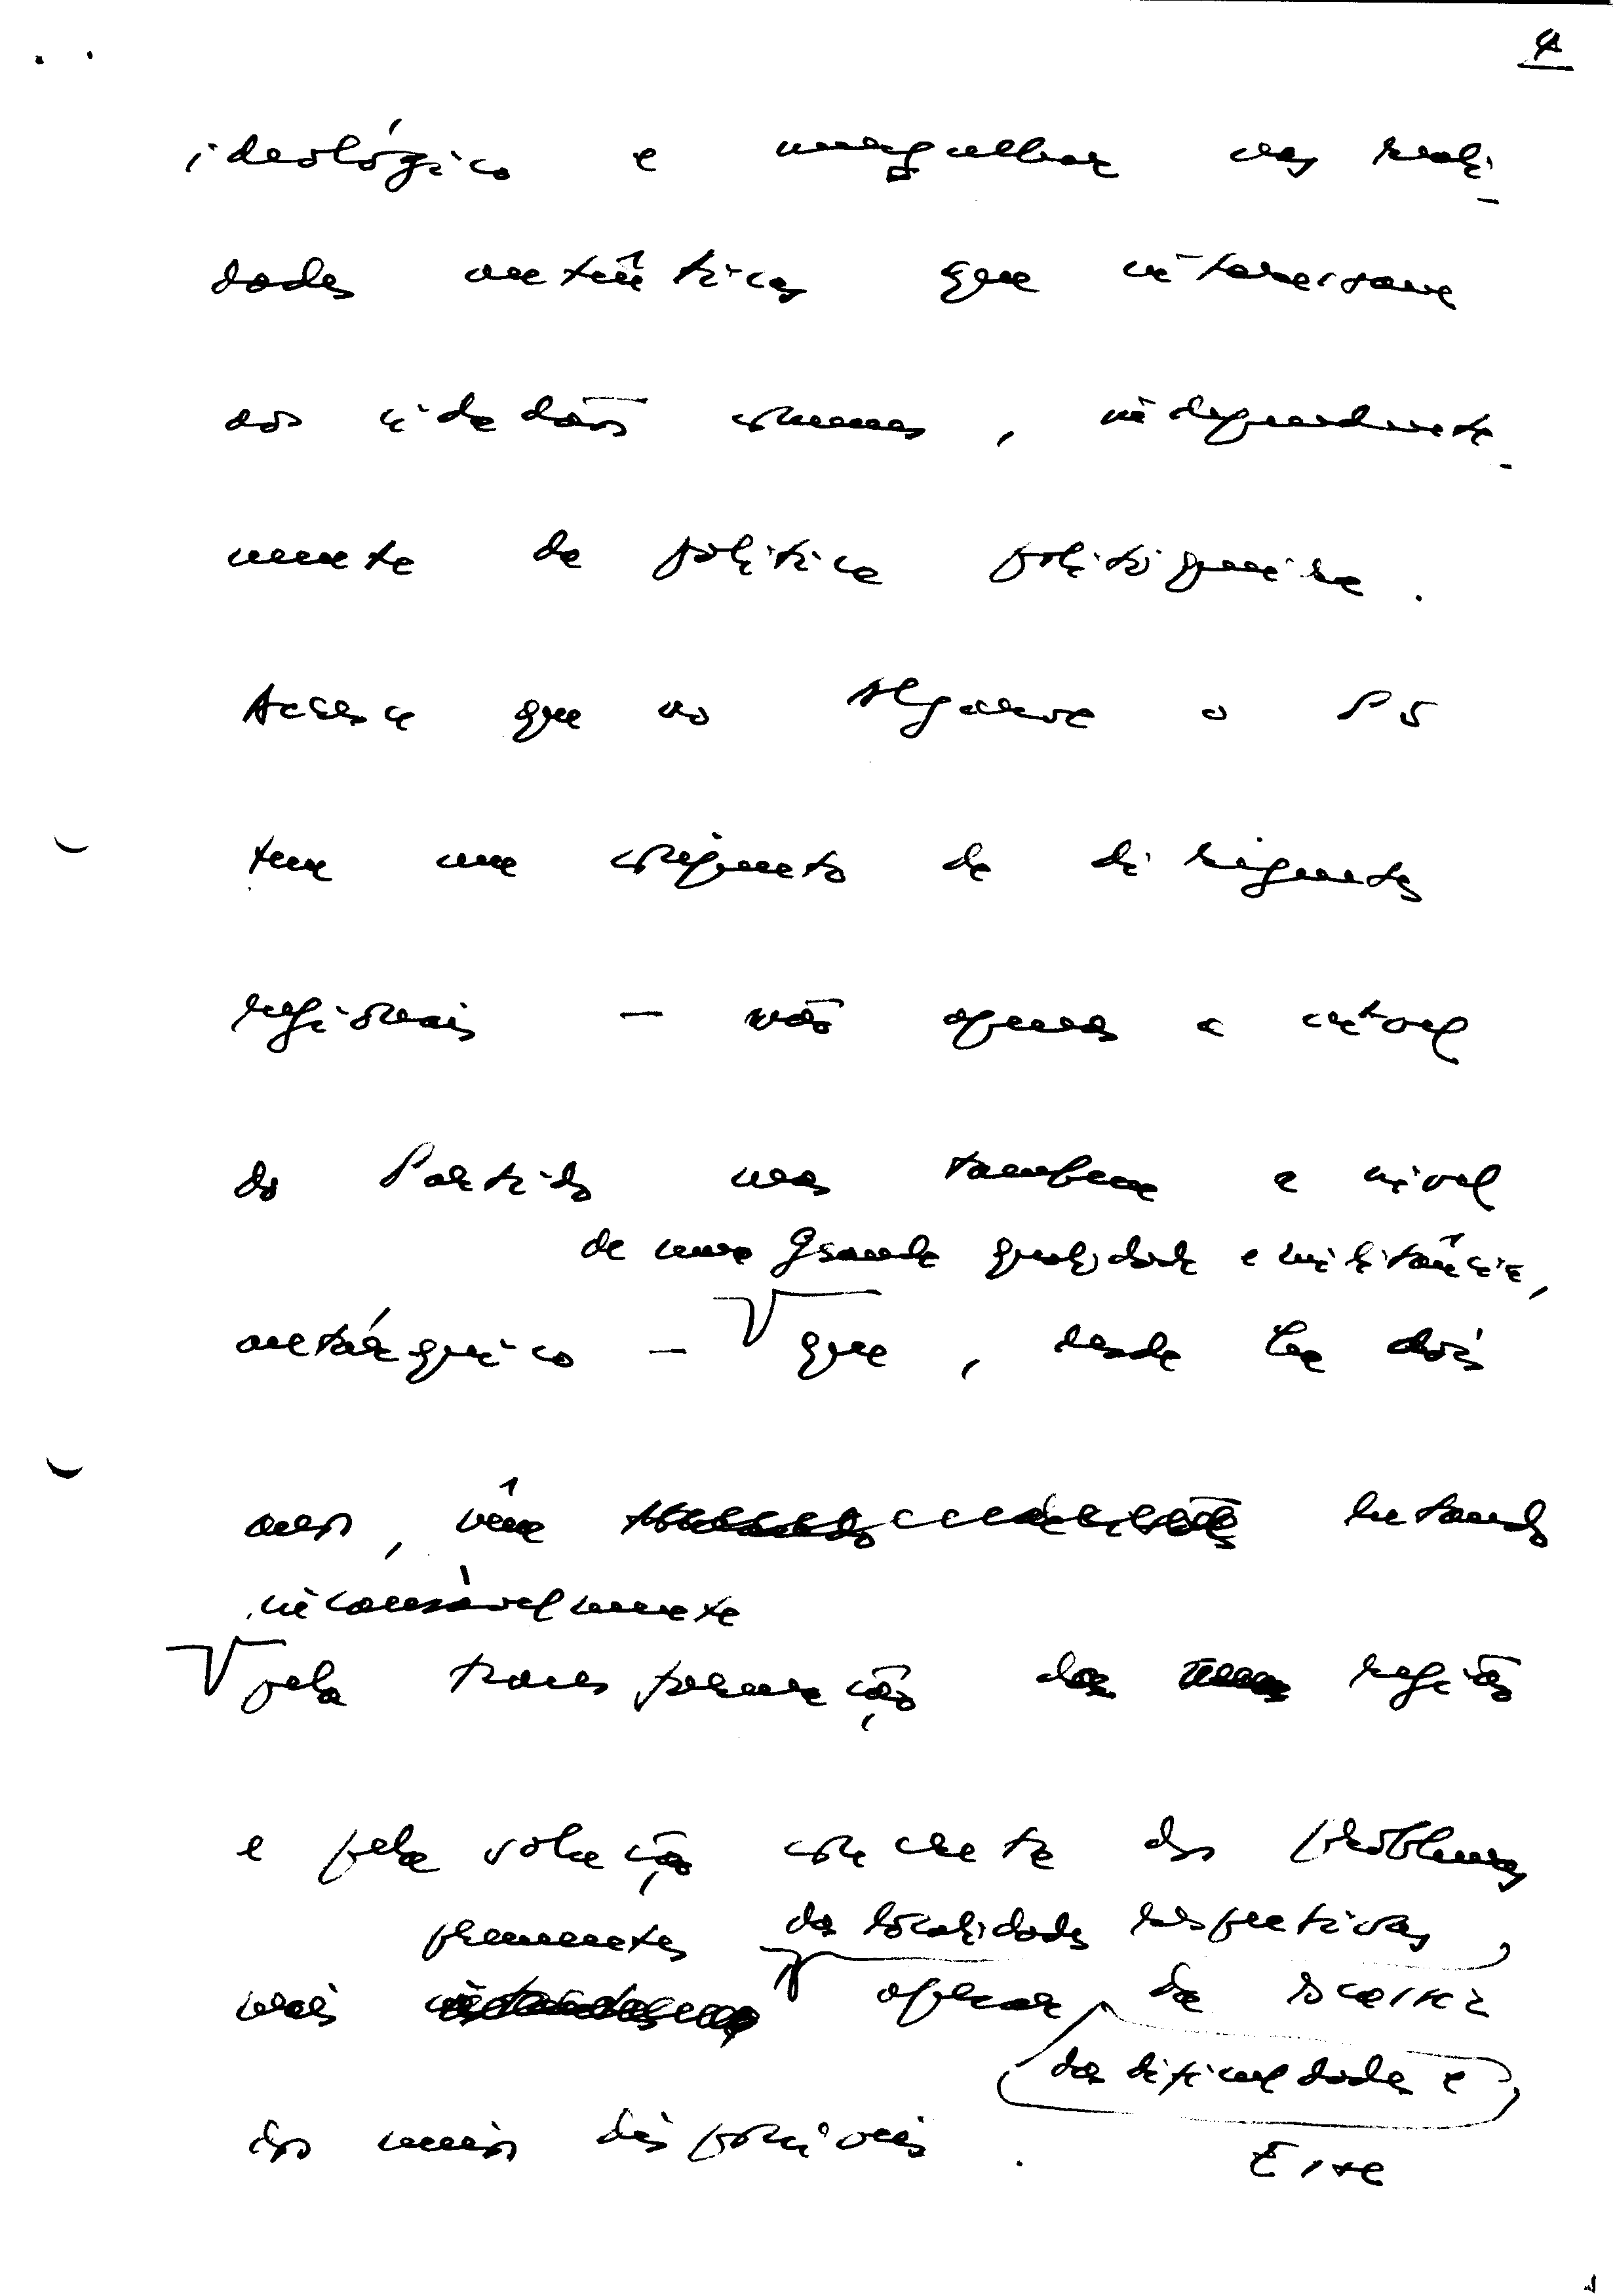 4
ideológico e mergulhar nas reali-
dades autênticas que interessam
aos cidadãos comuns, independente-
mente da política politiqueira.
Acresce que no Algarve o PS
tem um conjunto de dirigentes
regionais — não apenas a nível
do Partido mas também a nível
de uma grande qualidade e militância,
autárquico — que, desde há dois
anos, vêm lutando
incansàvelmente
pela transformação da região
e pela solução concreta dos problemas
prementes das localidades respectivas,
mais apesar da
das dificuldades e
dos meios disponíveis. Esse